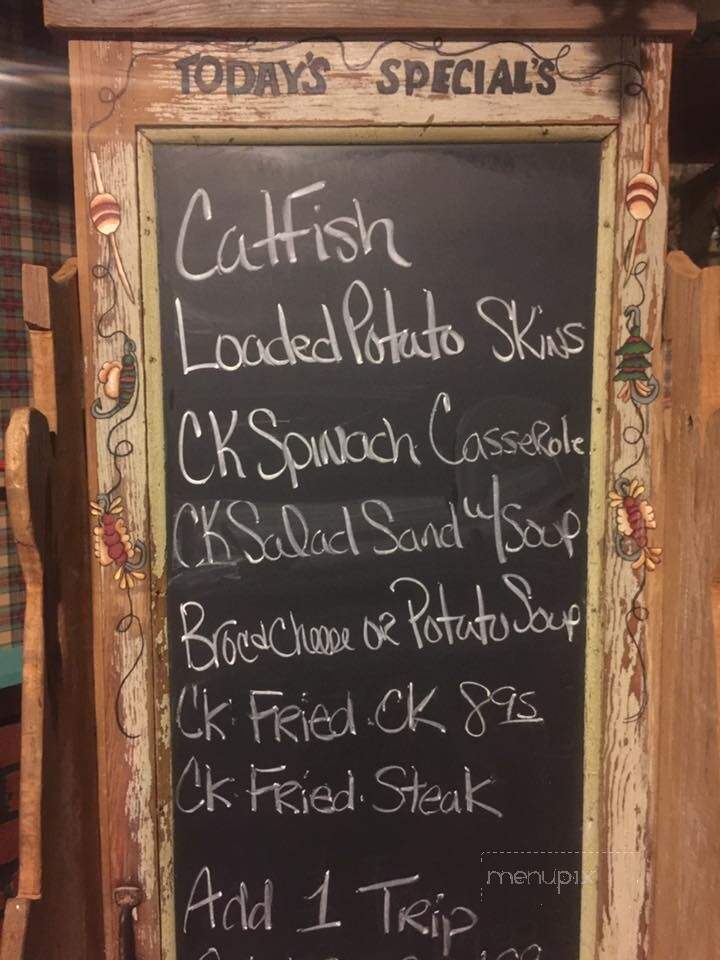 TODAY'S SPECIAL'S
Catfish
Loaded Potato Skins
CK Spinach Casserole
CK Salad Sand w/Soup
Broc & Cheese or Potato Soup
CK Fried CK 8 95
CK Fried Steak
Add 1 Trip
menupix